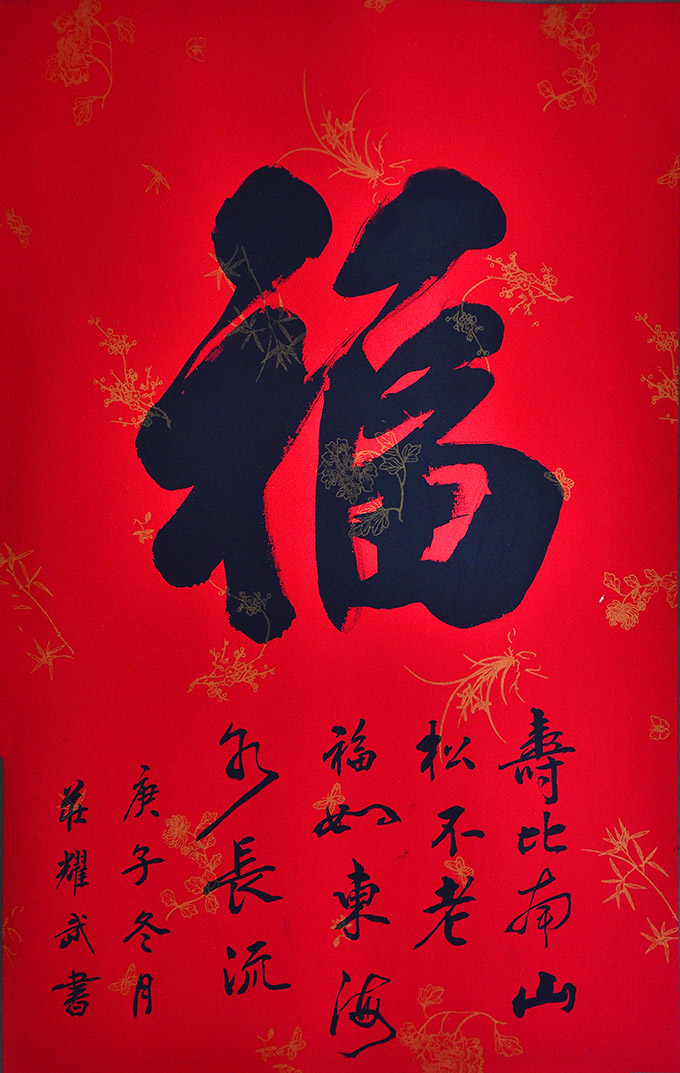 福
壽比南山
松不老
福如東海
水長流
庚子冬月
莊耀武書